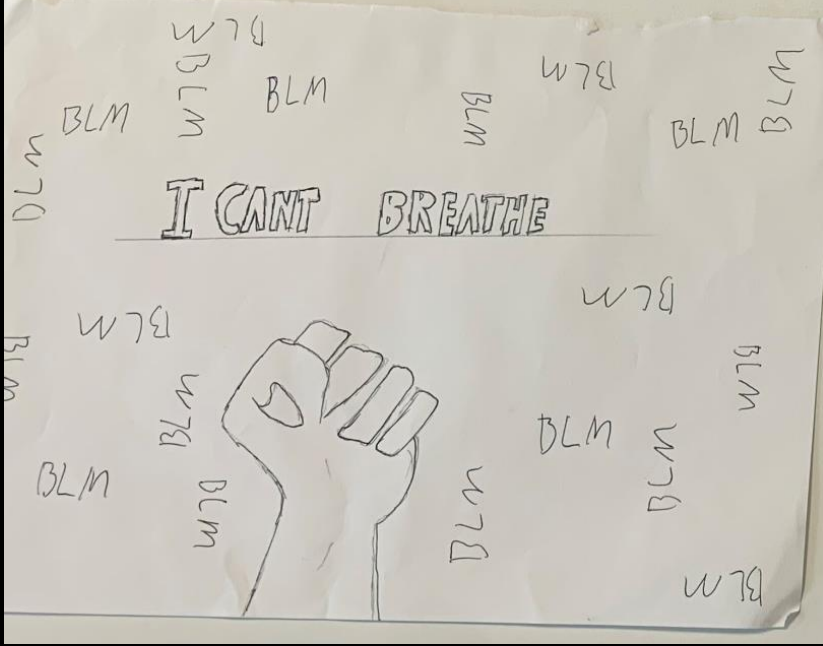 BLM
BLM
BLM
BLM
BLM
BLM
BLM
BLM
BLM
I CANT BREATHE
BLM
BLM
BLM
BLM
BLM
BLM
BLM
BLM
BLM
BLM
BLM
BLM